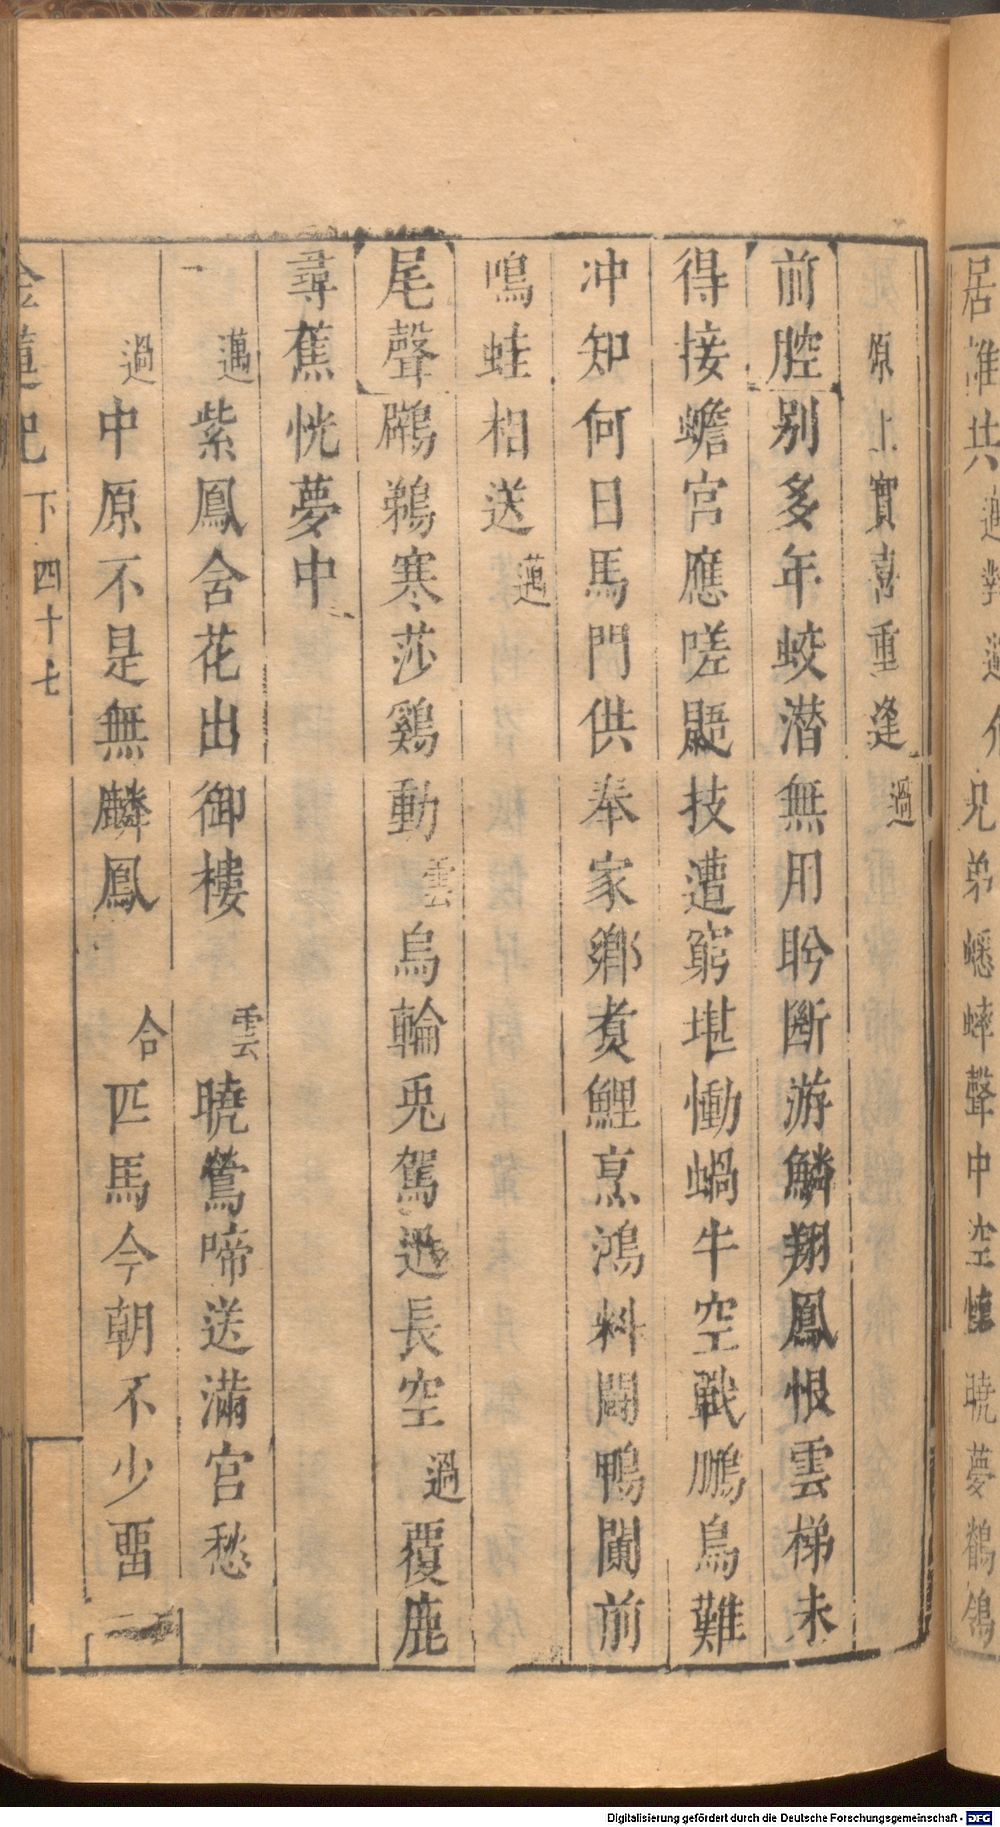 居誰共 過對邁介兄弟蟋蟀聲中空懷曉夢鶺鴒
原上實喜重逢 過
前腔 别多年蛟潛無用盻斷游鱗翔鳳恨雲梯未
得接蟾宮應嗟鼯技遭窮堪慟蝸牛空戰鵬鳥難
冲知何日馬門供奉家鄉煑鯉烹鴻料鬪鴨闌前
鳴蛙相送 邁
尾聲 鸊鵜寒莎鷄動 雲 烏輪兎駕迅長空 過 覆鹿
尋蕉恍夢中
邁 紫鳳含花出御樓 雲 曉鶯啼送滿宮愁
過 中原不是無麟鳳 合 匹馬今朝不少畱
金蓮記 下 四十七
Digitalisierung gefördert durch die Deutsche Forschungsgemeinschaft - DFG